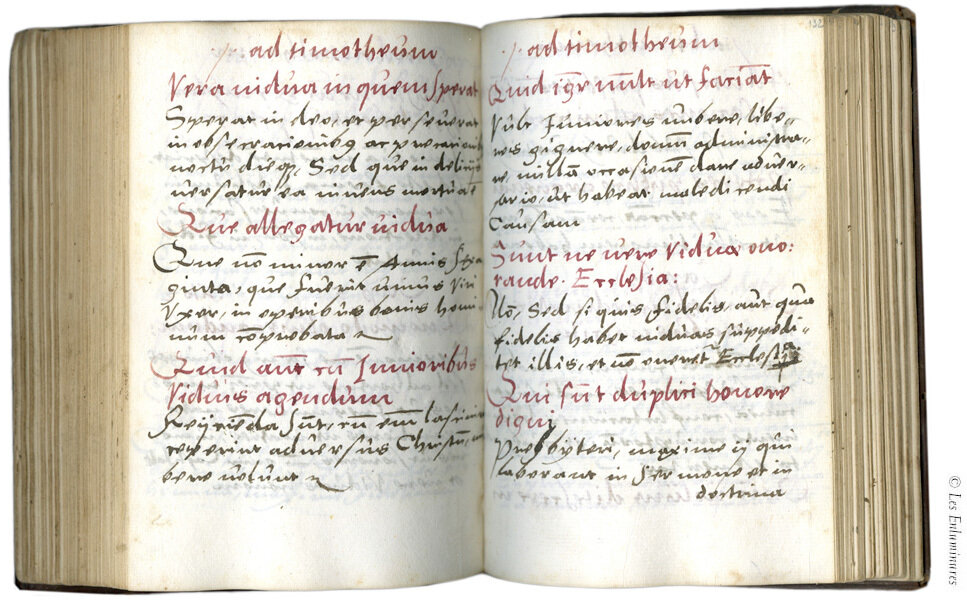 ad timotheum
Vera vidua in quem sperat
Sperat in deo, et perseverat
in obsecrationibꝯ ac precationib
noctu dieqꝫ, Sed que in delitijs
versatur ea vivens mortua ē
Que allegatur vidua
Que nō minor ē Annis sexa
ginta, que fuerit unius viri
Uxor, in operibus bonis homi
num cōprobata
Quid aūt cū Iunioribus
Viduis agendum
Reijciēda sūt, cū eīm lascivire
ceperint adversus Christū,
bere volunt
ad timotheum
Quid igr vult ut faciāt
Vult Iuniores nubere, libe-
ros gignere, domū administra-
re nullā occasionē dare adver-
sario, ut habeat maledicendi
Causam
Sunt ne vere Viduæ ono:
rande Ecclesia:
Nō, Sed si quis fidelis, aut qua
fidelis habet viduas suppedi-
tet illis, et nō oneret Ecclesia
Qui sūt duplici honore
digni
Presbyteri, maxime ij qui
laborant in sermone et in
doctrina
132
© Les Enluminures